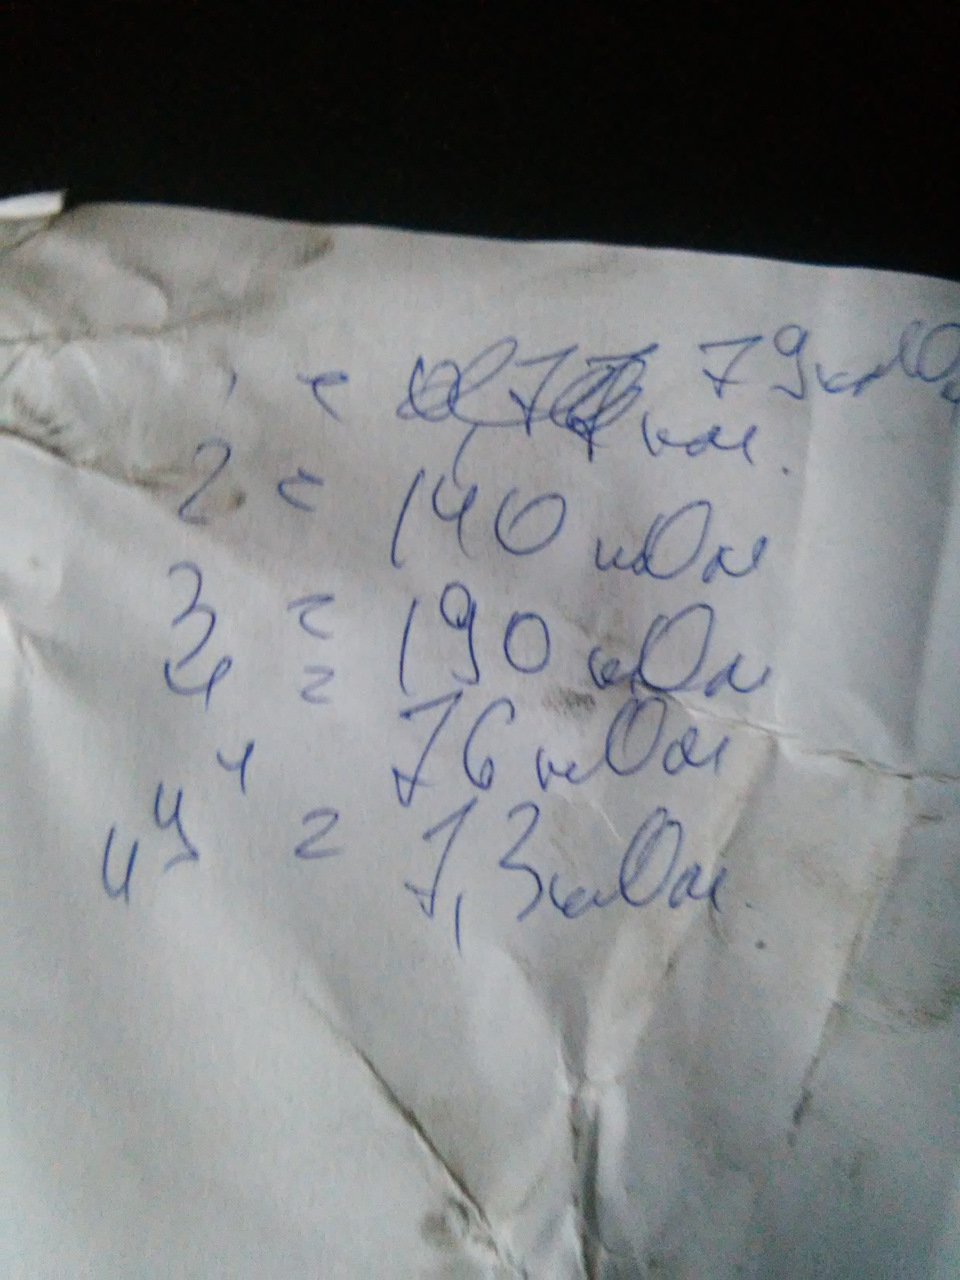 1 = 79 кОм
ком.
2 = 140 кОм
3 = 190 кОм
4 = 76 кОм
"ч" = 7,3 кОм.